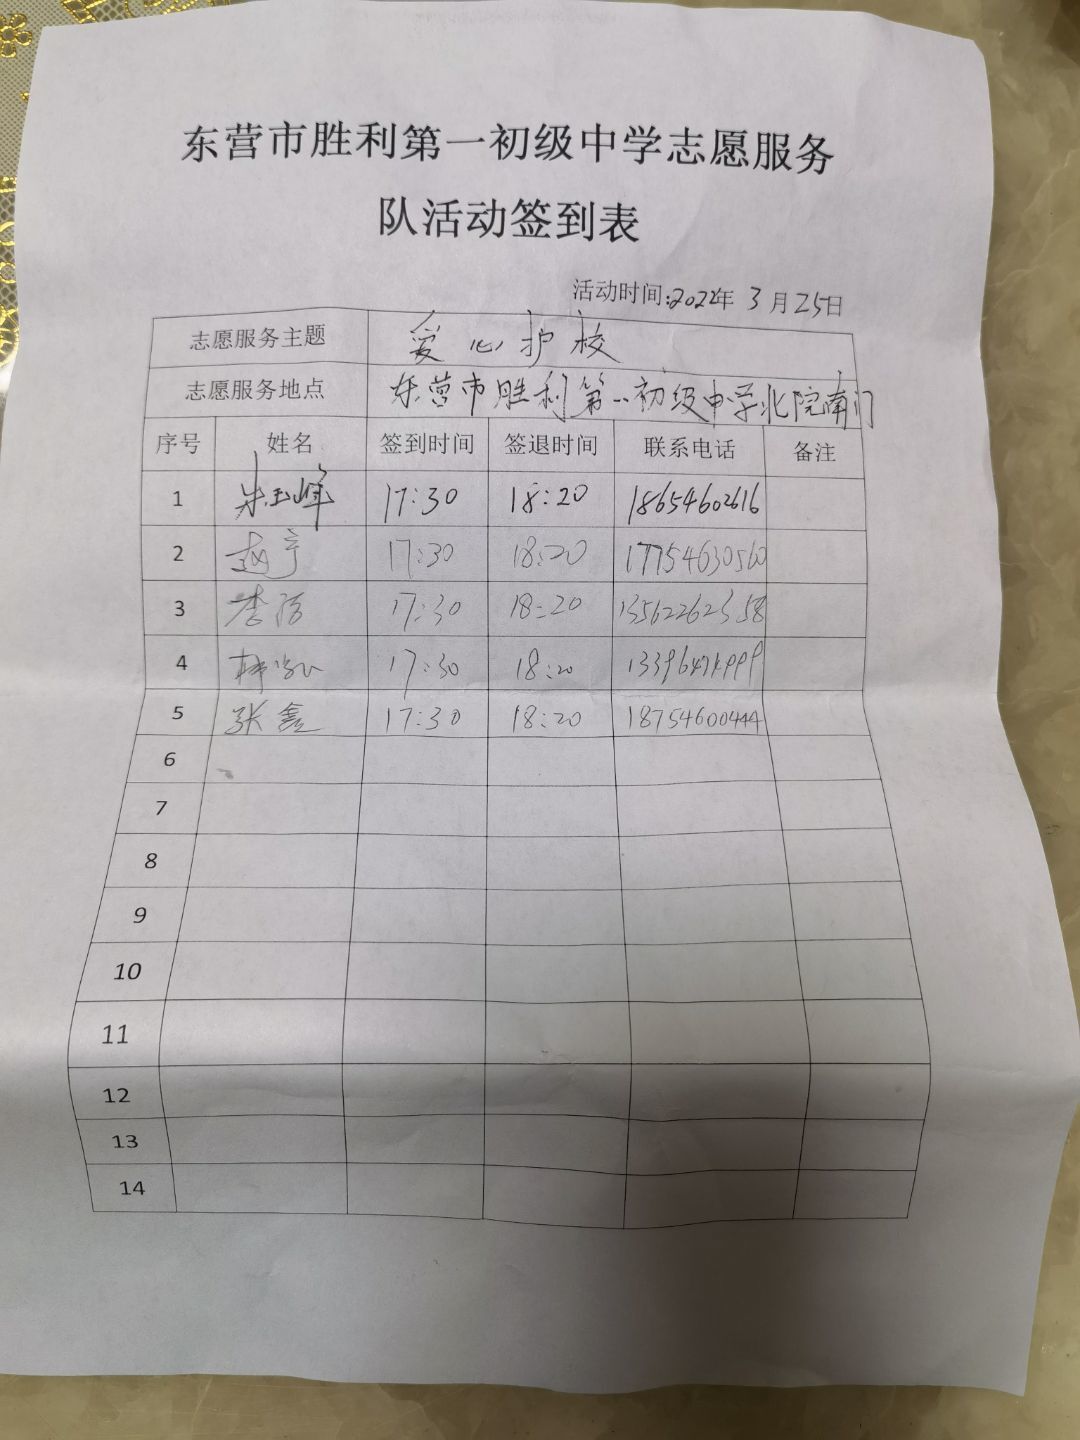 东营市胜利第一初级中学志愿服务
队活动签到表
活动时间:2022年 3月25日
志愿服务主题 爱心护校
志愿服务地点 东营市胜利第一初级中学北院南门
序号 姓名 签到时间 签退时间 联系电话 备注
1 朱玉峰 17:30 18:20 18654602616
2 赵宁 17:30 18:20 17754630560
3 李 17:30 18:20 13562262358
4 林 17:30 18:20
5 张鑫 17:30 18:20 18754600444
6
7
8
9
10
11
12
13
14